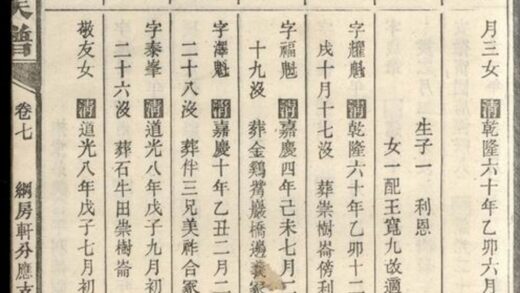 月三女 清乾隆六十年乙卯六月
生子一 利恩
女一配王寬九故適
字耀魁 清乾隆六十年乙卯十二
戌十月十七沒 葬崇樹崙傍利
字福魁 清嘉慶四年己未七月二
十九沒 葬金鵝嘴巖橋邊義冢
字澤魁 清嘉慶十年乙丑二月二
二十八沒 葬伴三兄美祚合冢
字泰峯 清道光八年戊子九月初
二十六沒 葬石牛田崇樹崙
敬友女 清道光八年戊子七月初
譜
卷七 綱房軒分應支